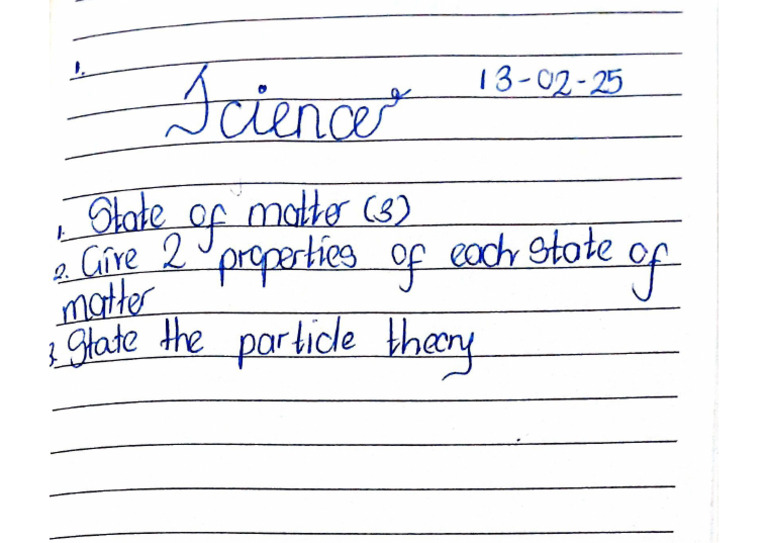 1.
Science 13-02-25
1. State of matter (3)
2. Give 2 properties of each state of
matter
3. State the particle theory